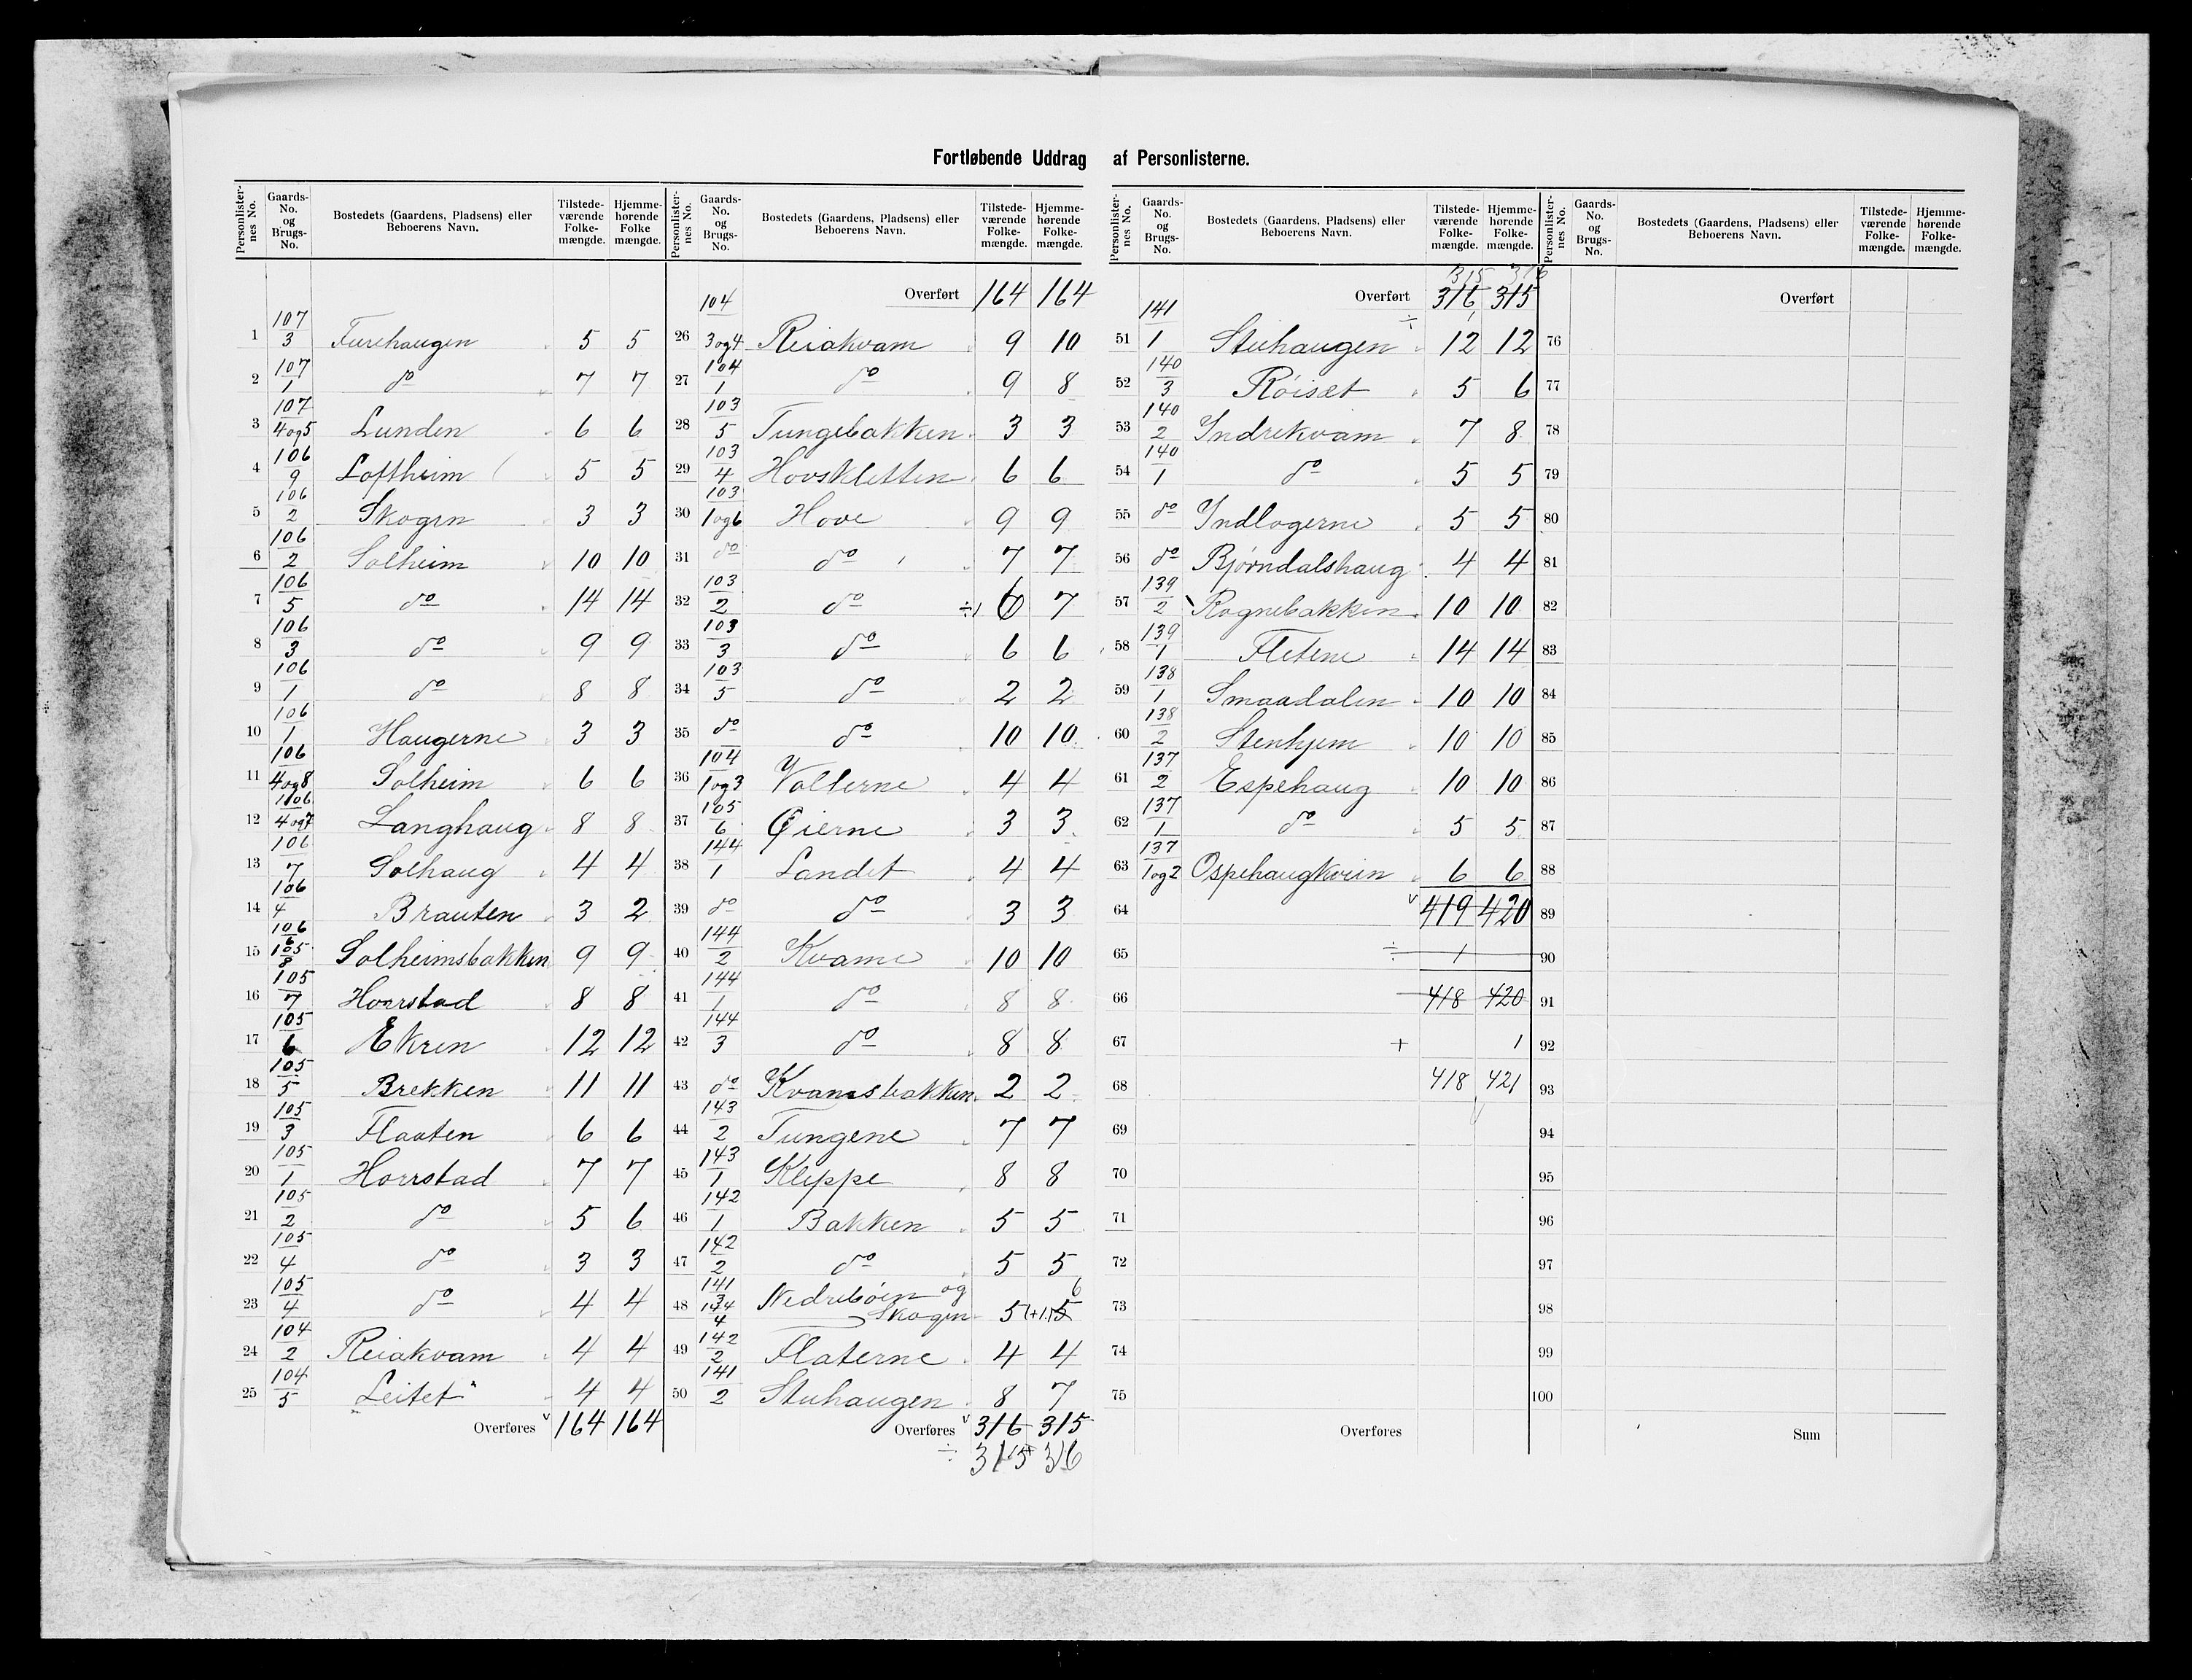 Fortløbende Uddrag af Personlisterne.
Personlisternes No. | Gaards-No. og Brugs-No. | Bostedets (Gaardens, Pladsens) eller Beboerens Navn. | Tilstedeværende Folkemængde. | Hjemmehørende Folke mængde.
1 107/3 Furehaugen 5 5
2 107/1 do 7 7
3 107/4og5 Lunden 6 6
4 106/9 Loftheim 5 5
5 106/2 Skogen 3 3
6 106/2 Solheim 10 10
7 106/5 do 14 14
8 106/3 do 9 9
9 106/1 do 8 8
10 106/1 Haugerne 3 3
11 106/4og8 Solheim 6 6
12 106/4og7 Langhaug 8 8
13 106/7 Solhaug 4 4
14 106/4 Brauten 3 2
15 106/6 105/8 Solheimsbakken 9 9
16 105/7 Hovrstad 8 8
17 105/6 Ekren 12 12
18 105/5 Brekken 11 11
19 105/3 Flaaten 6 6
20 105/1 Horrstad 7 7
21 105/2 do 5 6
22 105/4 do 3 3
23 105/4 do 4 4
24 104/2 Reiakvam 4 4
25 104/5 Leitet 4 4
Overføres 164 164
Personlisternes No. | Gaards-No. og Brugs-No. | Bostedets (Gaardens, Pladsens) eller Beboerens Navn. | Tilstedeværende Folkemængde. | Hjemmehørende Folkemængde.
Overført 164 164
26 104/3og4 Reiakvam 9 10
27 104/1 do 9 8
28 103/5 Tungebakken 3 3
29 103/4 Hovskletten 6 6
30 103/1og6 Hove 9 9
31 do do 7 7
32 103/2 do ÷1 6 7
33 103/3 do 6 6
34 103/5 do 2 2
35 do do 10 10
36 104/1og3 Vollerne 4 4
37 105/6 Øierne 3 3
38 144/1 Landet 4 4
39 do do 3 3
40 144/2 Kvame 10 10
41 144/1 do 8 8
42 144/3 do 8 8
43 do Kvamsbakken 2 2
44 143/2 Tungene 7 7
45 143/1 Kleppe 8 8
46 142/1 Bakken 5 5
47 142/2 do 5 5
48 141/3 144/4 Nedrebøen og Skogen 5 (+1) 5 6
49 142/2 Flaterne 4 4
50 141/2 Stuhaugen 8 7
Overføres 316 315
÷ 315 316
Personlisternes No. | Gaards-No. og Brugs-No. | Bostedets (Gaardens, Pladsens) eller Beboerens Navn. | Tilstedeværende Folkemængde. | Hjemmehørende Folkemængde.
315 316
Overført 316 315
÷ 1
51 141/1 Stuhaugen 12 12
52 140/3 Røiset 5 6
53 140/2 Indrekvam 7 8
54 140/1 do 5 5
55 do Indlogerne 5 5
56 do Bjørndalshaug 4 4
57 139/2 Rognebakken 10 10
58 139/1 Fletene 14 14
59 138/1 Smaadalen 10 10
60 138/2 Stenhjem 10 10
61 137/2 Espehaug 10 10
62 137/1 do 5 5
63 137/1og2 Ospehaugkvien 6 6
64 419 420
65 ÷ 1
66 418 420
67 + 1
68 418 421
69
70
71
72
73
74
75
Overføres
Personlisternes No. | Gaards-No. og Brugs-No. | Bostedets (Gaardens, Pladsens) eller Beboerens Navn. | Tilstedeværende Folkemængde. | Hjemmehørende Folkemængde.
Overført
76
77
78
79
80
81
82
83
84
85
86
87
88
89
90
91
92
93
94
95
96
97
98
99
100
Sum